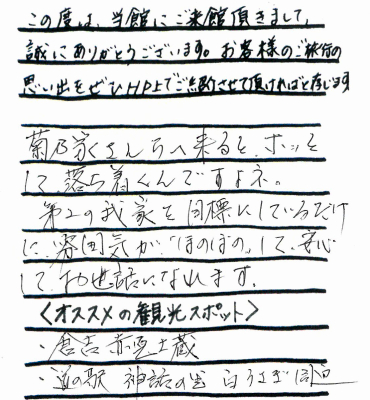 この度は、当館にご来館頂きまして、
誠にありがとうございます。お客様のご旅行の
思い出をぜひHP上でご紹介させて頂ければと存じます
菊乃家さんちへ来ると、ホッと
して落ち着くんですよネ。
第2の我家を目標にしているだけ
に、雰囲気が「ほのぼの」して、安心
してお世話になれます。
〈オススメの観光スポット〉
・倉吉 赤瓦土蔵
・道の駅 神話の里 白うさぎ周辺